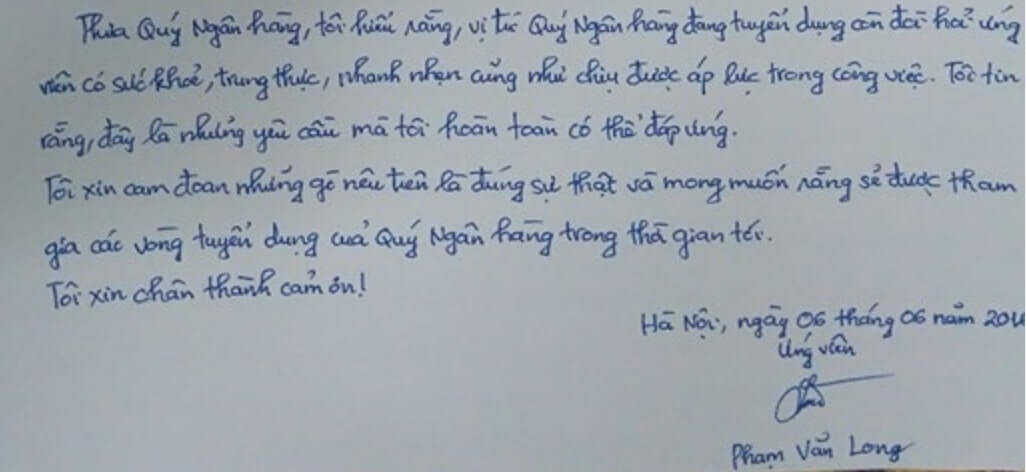 Thưa Quý Ngân hàng, tôi hiểu rằng, vị trí Quý Ngân hàng đang tuyển dụng còn đòi hỏi ứng
viên có sức khoẻ, trung thực, nhanh nhẹn cũng như chịu được áp lực trong công việc. Tôi tin
rằng, đây là những yêu cầu mà tôi hoàn toàn có thể đáp ứng.
Tôi xin cam đoan những gì nêu trên là đúng sự thật và mong muốn rằng sẽ được tham
gia các vòng tuyển dụng của Quý Ngân hàng trong thời gian tới.
Tôi xin chân thành cảm ơn!
Hà Nội, ngày 06 tháng 06 năm
Ứng viên
Phạm Văn Long